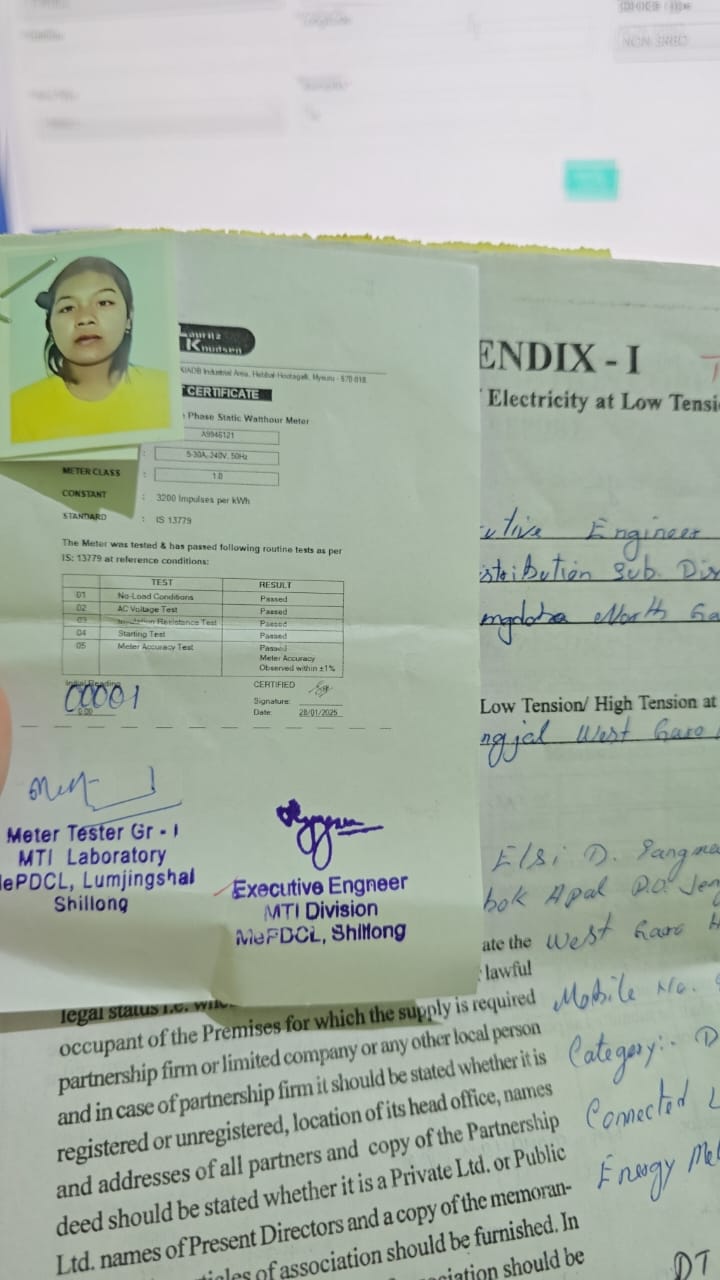 NON SRBC
Lauritz
Knudsen
KIADB Industrial Area, Hebbal-Hootagalli, Mysuru - 570 018.
CERTIFICATE
Phase Static Watthour Meter
A9946121
: 5-30A, 240V, 50Hz
METER CLASS : 1.0
CONSTANT : 3200 Impulses per kWh
STANDARD : IS 13779
The Meter was tested & has passed following routine tests as per
IS: 13779 at reference conditions:
TEST RESULT
01 No-Load Conditions Passed
02 AC Voltage Test Passed
03 Insulation Resistance Test Passed
04 Starting Test Passed
05 Meter Accuracy Test Passed
Meter Accuracy
Observed within ±1%
Initial Reading
00001
0.00
CERTIFIED
Signature:
Date: 28/01/2025
Meter Tester Gr - I
MTI Laboratory
MePDCL, Lumjingshai
Shillong
Executive Engneer
MTI Division
MePDCL, Shillong
ENDIX - I
Electricity at Low Tensi
utive Engineer
stribution Sub. Div
North Ga
Low Tension/ High Tension at
West Garo
Elsi D. Sangma
bok Apal P.O. Jen
ate the West Garo H
lawful
legal status i.e. whe
occupant of the Premises for which the supply is required
partnership firm or limited company or any other local person
and in case of partnership firm it should be stated whether it is
registered or unregistered, location of its head office, names
and addresses of all partners and copy of the Partnership
deed should be stated whether it is a Private Ltd. or Public
Ltd. names of Present Directors and a copy of the memoran-
icles of association should be furnished. In
ciation should be
Mobile No.
Category:- D
Connected L
Energy Met
DT